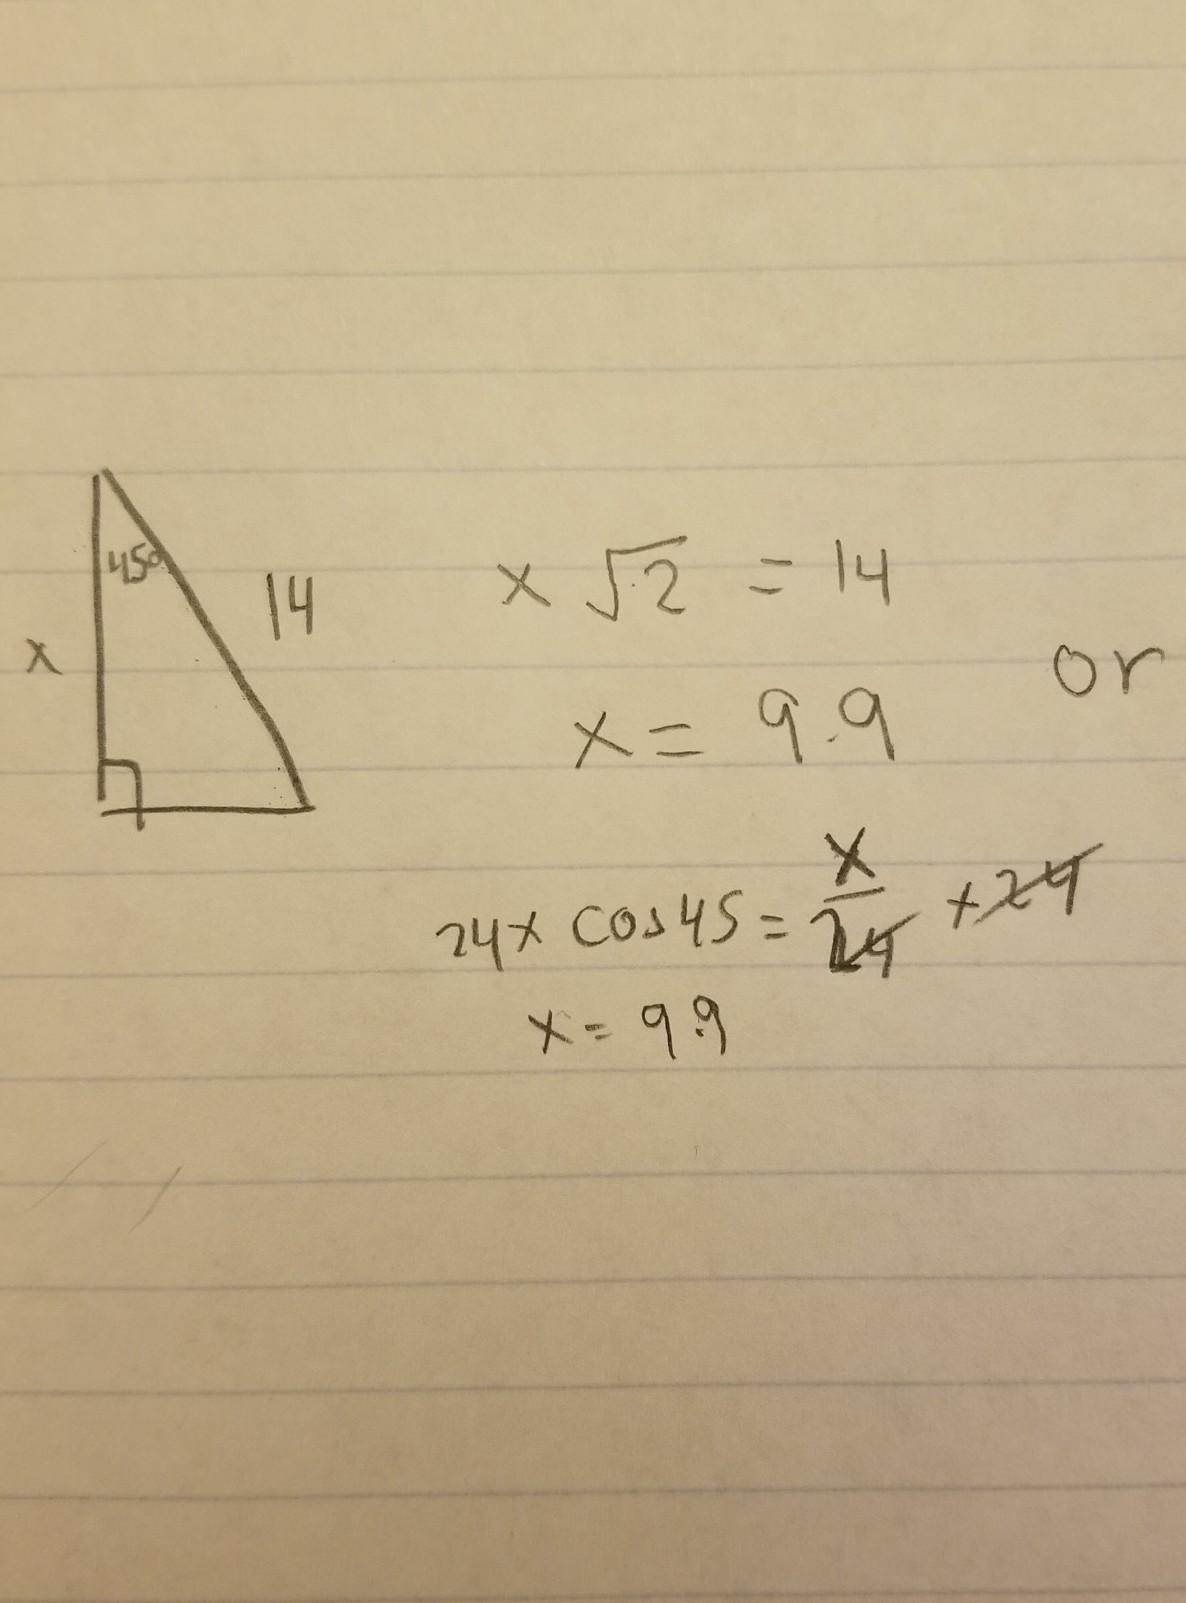 45°
14
x
x √2 = 14
or
x = 9.9
24x cos 45 = x/24 x 24
x = 9.9